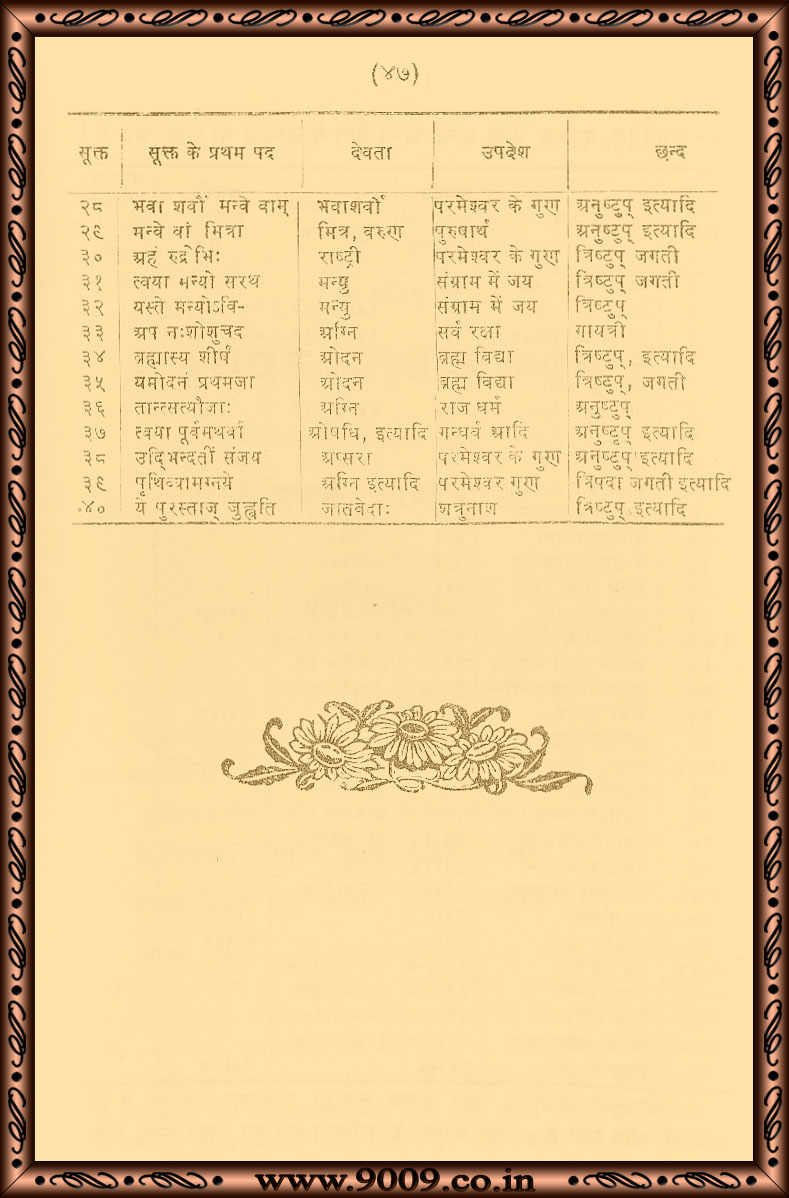 (४७)
सूक्त सूक्त के प्रथम पद देवता उपदेश छन्द
२८ भवा शर्वौ मन्वे वाम् भवाशर्वौ परमेश्वर के गुण अनुष्टुप् इत्यादि
२९ मन्वे वां मित्रा मित्र, वरुण पुरुषार्थ अनुष्टुप् इत्यादि
३० अहं रुद्रेभिः राष्ट्री परमेश्वर के गुण त्रिष्टुप् जगती
३१ त्वया मन्यो सरथ मन्यु संग्राम में जय त्रिष्टुप् जगती
३२ यस्ते मन्योऽवि- मन्यु संग्राम में जय त्रिष्टुप्
३३ अप नःशोशुचद अग्नि सर्व रक्षा गायत्री
३४ ब्रह्मास्य शीर्षं ओदन ब्रह्म विद्या त्रिष्टुप्, इत्यादि
३५ यमोदनं प्रथमजा ओदन ब्रह्म विद्या त्रिष्टुप्, जगती
३६ तान्त्सत्यौजाः अग्नि राज धर्म अनुष्टुप्
३७ त्वया पूर्वमथर्वा ओषधि, इत्यादि गन्धर्व आदि अनुष्टुप् इत्यादि
३८ उद्भिन्दतीं संजय अप्सरा परमेश्वर के गुण अनुष्टुप् इत्यादि
३९ पृथिव्यामग्नये अग्नि इत्यादि परमेश्वर गुण त्रिपदा जगती इत्यादि
४० ये पुरस्ताज् जुह्वति जातवेदाः शत्रुनाश त्रिष्टुप् इत्यादि
www.9009.co.in